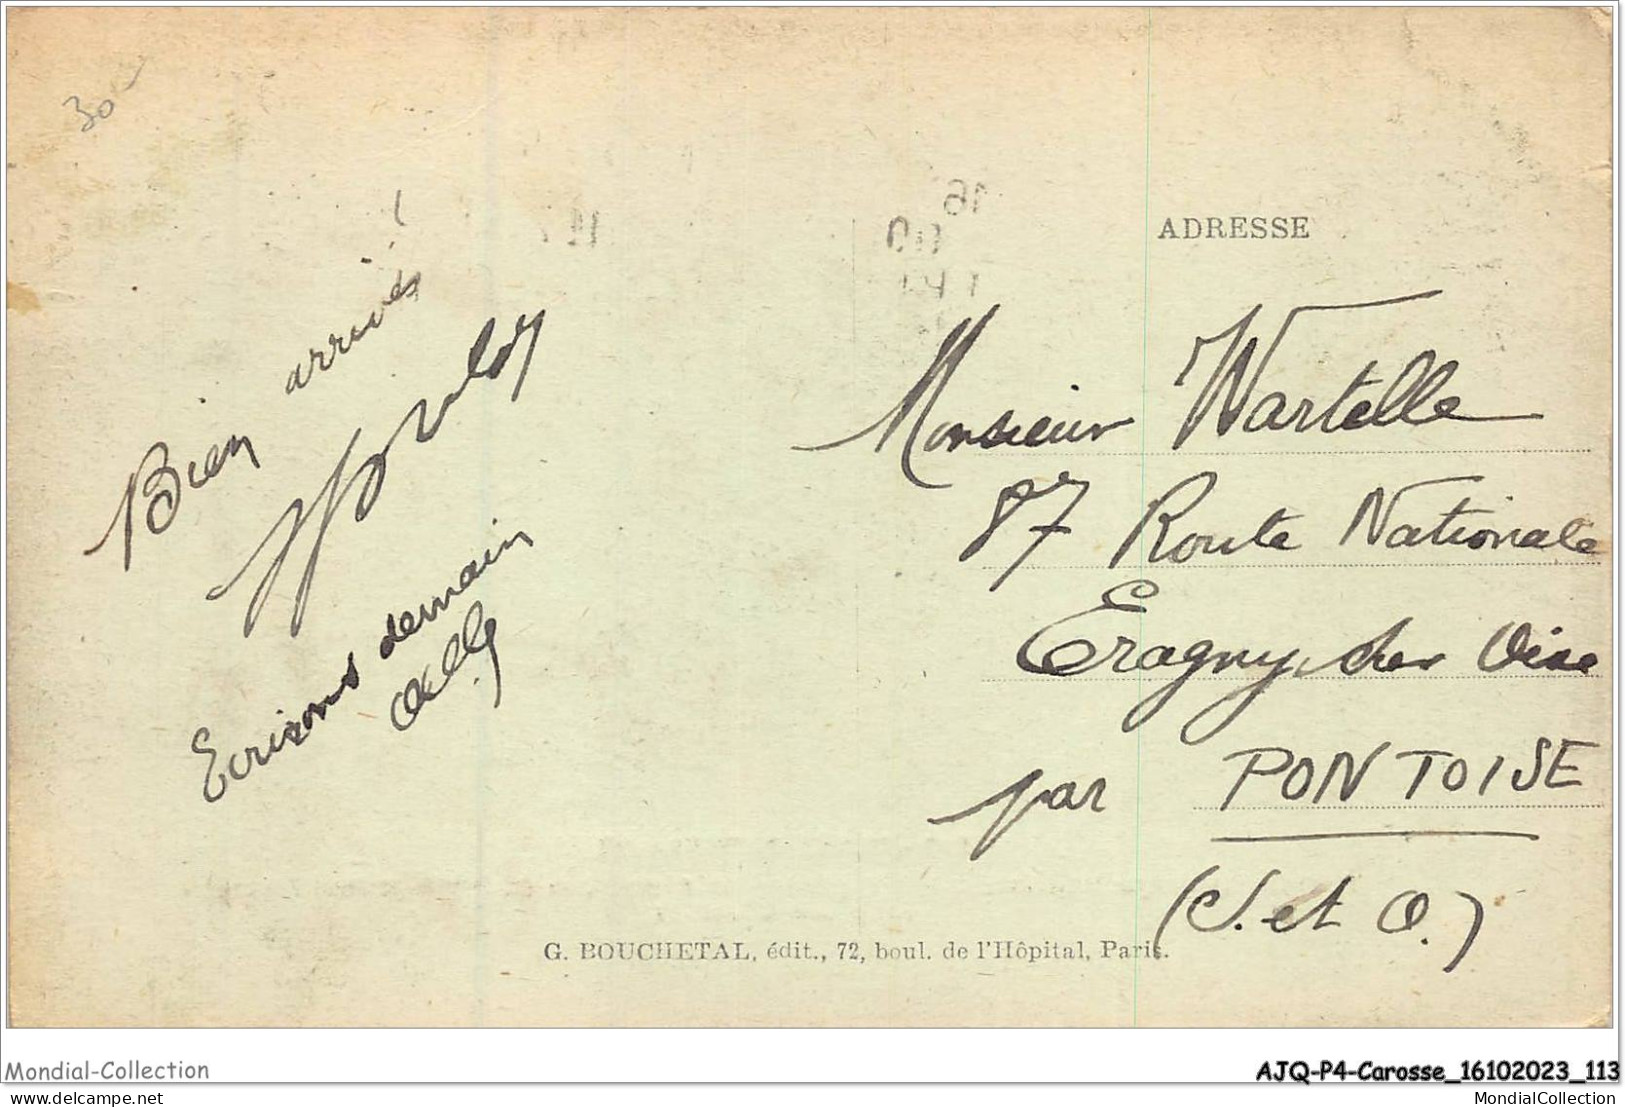 30
Bien arrivés
Ecrivons demain
ADRESSE
Monsieur Wartelle
87 Route Nationale
Eragny sur Oise
par PONTOISE
(S. et O.)
G. BOUCHETAL, édit., 72, boul. de l'Hôpital, Paris.
Mondial-Collection
AJQ-P4-Carosse_16102023_113
delcampe.net
MondialCollection